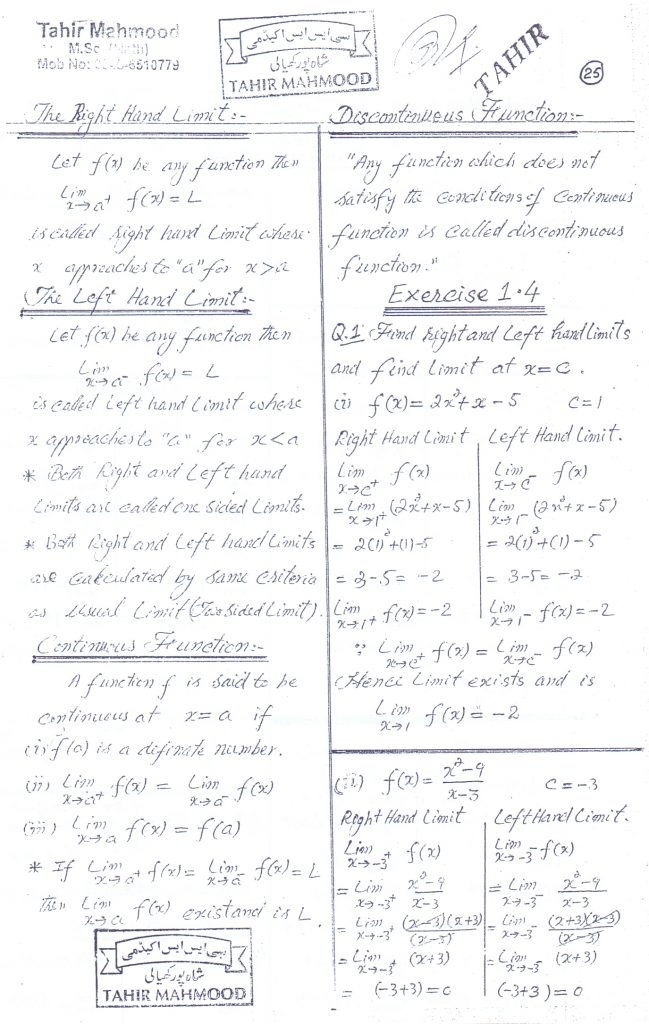 Tahir Mahmood
M.Sc (Math)
Mob No: 6510779
سی ایس ایس اکیڈمی
شاہ پور کھیالی
TAHIR MAHMOOD
TAHIR
25
The Right Hand Limit:-
Let f(x) be any function then
Lim x→a⁺ f(x) = L
is called right hand Limit where
x approaches to "a" for x>a
The Left Hand Limit:-
Let f(x) be any function then
Lim x→a⁻ f(x) = L
is called Left hand Limit where
x approaches to "a" for x<a
* Both Right and Left hand
Limits are called one sided Limits.
* Both Right and Left hand Limits
are calculated by same criteria
as usual Limit (Two Sided Limit).
Continuous Function:-
A function f is said to be
continuous at x=a if
(i) f(a) is a definate number.
(ii) Lim x→a⁺ f(x) = Lim x→a⁻ f(x)
(iii) Lim x→a f(x) = f(a)
* If Lim x→a⁺ f(x) = Lim x→a⁻ f(x) = L
then Lim x→a f(x) exist and is L.
سی ایس ایس اکیڈمی
شاہ پور کھیالی
TAHIR MAHMOOD
Discontinuous Function:-
"Any function which does not
satisfy the conditions of continuous
function is called discontinuous
function."
Exercise 1.4
Q.1 Find Right and Left hand Limits
and find Limit at x=c.
(i) f(x) = 2x²+x-5 c=1
Right Hand Limit
Lim x→c⁺ f(x)
= Lim x→1⁺ (2x²+x-5)
= 2(1)²+(1)-5
= 3-5 = -2
Lim x→1⁺ f(x) = -2
Left Hand Limit.
Lim x→c⁻ f(x)
Lim x→1⁻ (2x²+x-5)
= 2(1)²+(1)-5
= 3-5 = -2
Lim x→1⁻ f(x) = -2
∵ Lim x→c⁺ f(x) = Lim x→c⁻ f(x)
Hence Limit exists and is
Lim x→1 f(x) = -2
(ii) f(x) = x²-9/x-3 c=-3
Right Hand Limit
Lim x→-3⁺ f(x)
= Lim x→-3⁺ x²-9/x-3
= Lim x→-3⁺ (x-3)(x+3)/(x-3)
= Lim x→-3⁺ (x+3)
= (-3+3) = 0
Left Hand Limit.
Lim x→-3⁻ f(x)
= Lim x→-3⁻ x²-9/x-3
= Lim x→-3⁻ (x+3)(x-3)/(x-3)
= Lim x→-3⁻ (x+3)
(-3+3) = 0